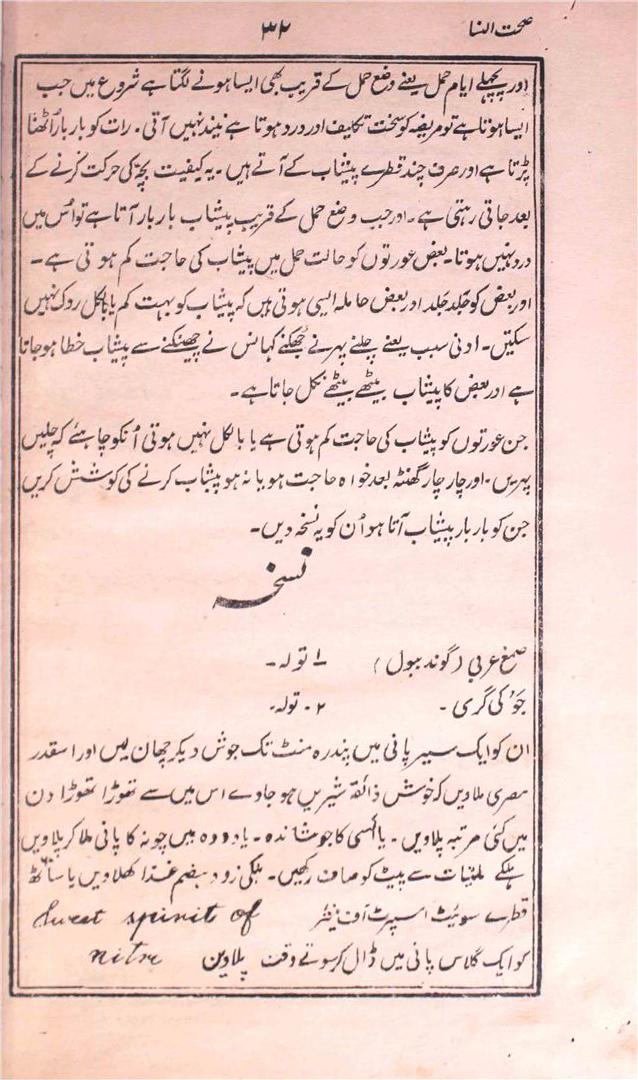 صحت النسا
۳۲
اور پچھلے ایام حمل یعنے وضع حمل کے قریب بھی ایسا ہونے لگتا ہے شروع میں جب
ایسا ہوتا ہے تو مریضہ کو سخت تکلیف اور درد ہوتا ہے نیند نہیں آتی۔ رات کو بار بار اُٹھنا
پڑتا ہے اور صرف چند قطرے پیشاب کے آتے ہیں۔ یہ کیفیت بچہ کی حرکت کرنے کے
بعد جاتی رہتی ہے۔ اور جب وضع حمل کے قریب پیشاب بار بار آتا ہے تو اُس میں
درد نہیں ہوتا۔ بعض عورتوں کو حالت حمل میں پیشاب کی حاجت کم ہوتی ہے۔
اور بعض کو جلد جلد اور بعض حاملہ ایسی ہوتی ہیں کہ پیشاب کو بہت کم یا بالکل روک نہیں
سکتیں۔ ادنی سبب یعنے چلنے پہرنے جُھکنے کھانسنے چھینکنے سے پیشاب خطا ہو جاتا
ہے اور بعض کا پیشاب بیٹھے بیٹھے نکل جاتا ہے۔
جن عورتوں کو پیشاب کی حاجت کم ہوتی ہے یا بالکل نہیں ہوتی اُنکو چاہئے کہ چلیں
پہریں۔ اور چار چار گھنٹہ بعد خواہ حاجت ہو یا نہ ہو پیشاب کرنے کی کوشش کریں
جن کو بار بار پیشاب آتا ہو اُن کو یہ نسخہ دیں۔
نسخہ
صمغ عربی (گوند ببول) ۱ تولہ۔
جَو کی گری۔ ۲۔ تولہ۔
ان کو ایک سیر پانی میں پندرہ منٹ تک جوش دیکر چھان لیں اور اسقدر
مصری ملا دیں کہ خوش ذائقہ شیریں ہو جاوے اس میں سے تھوڑا تھوڑا دن
میں کئی مرتبہ پلاویں۔ یا السی کا جوشاندہ۔ یا دودہ میں چونہ کا پانی ملا کر پلاویں
ہلکے ملینات سے پیٹ کو صاف رکھیں۔ ہلکی زود ہضم غذا کھلاویں یا ساٹھ
قطرے سوئیٹ اسپرٹ آف نیٹر Sweet spirit of
nitre کو ایک گلاس پانی میں ڈال کر سوتے وقت پلاویں